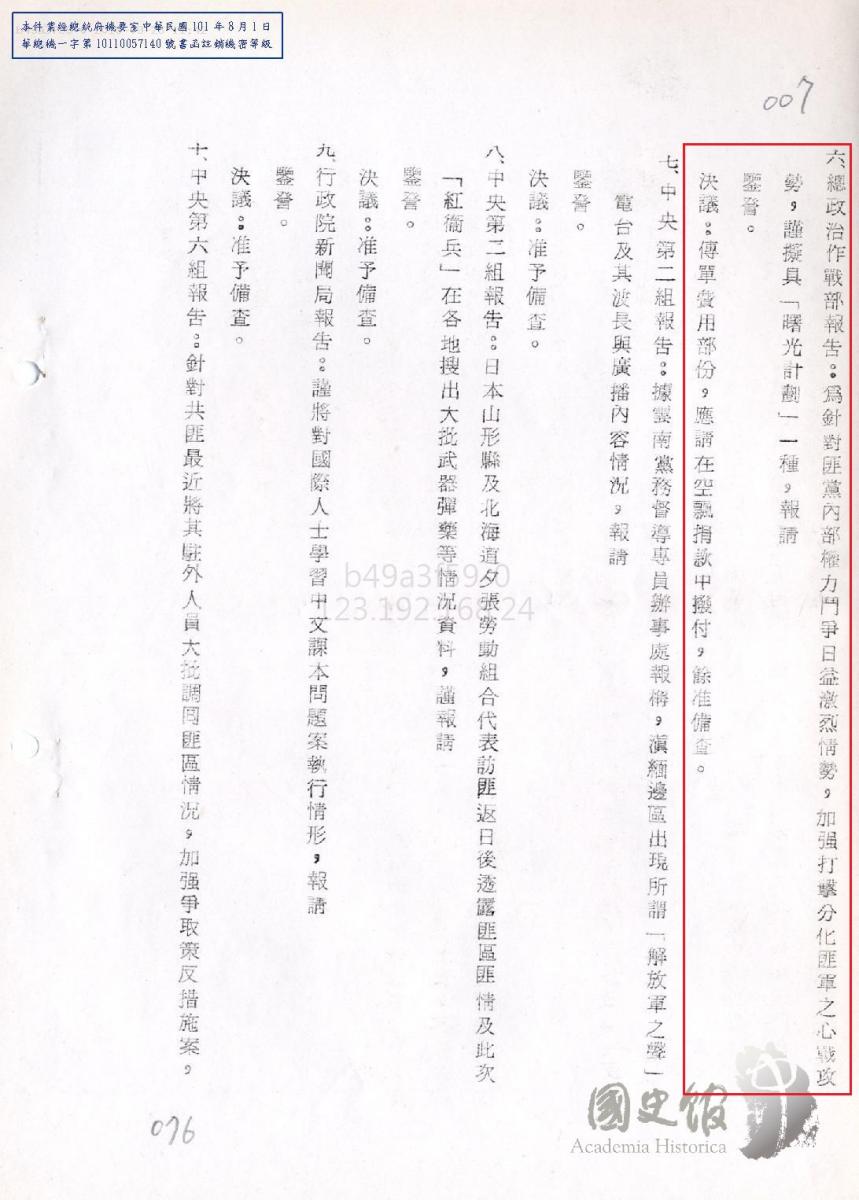 本件業經總統府機要室中華民國101年8月1日
華總機一字第10110057140號書函註銷機密等級
007
六、總政治作戰部報告：為針對匪黨內部權力鬥爭日益激烈情勢，加强打擊分化匪軍之心戰攻
勢，謹擬具「曙光計劃」一種，報請
鑒詧。
決議：傳單費用部份，應請在空飄捐款中撥付，餘准備查。
七、中央第二組報告：據雲南黨務督導專員辦事處報稱，滇緬邊區出現所謂「解放軍之聲」
電台及其波長與廣播內容情況，報請
鑒詧。
決議：准予備查。
八、中央第二組報告：日本山形縣及北海道夕張勞動組合代表訪匪返日後透露匪區匪情及此次
「紅衞兵」在各地搜出大批武器彈藥等情況資料，謹報請
鑒詧。
決議：准予備查。
九、行政院新聞局報告：謹將對國際人士學習中文課本問題案執行情形，報請
鑒詧。
決議：准予備查。
十、中央第六組報告：針對共匪最近將其駐外人員大批調回匪區情況，加强爭取策反措施案，
076
b49a3f5920
123.192.168.24
國史館
Academia Historica